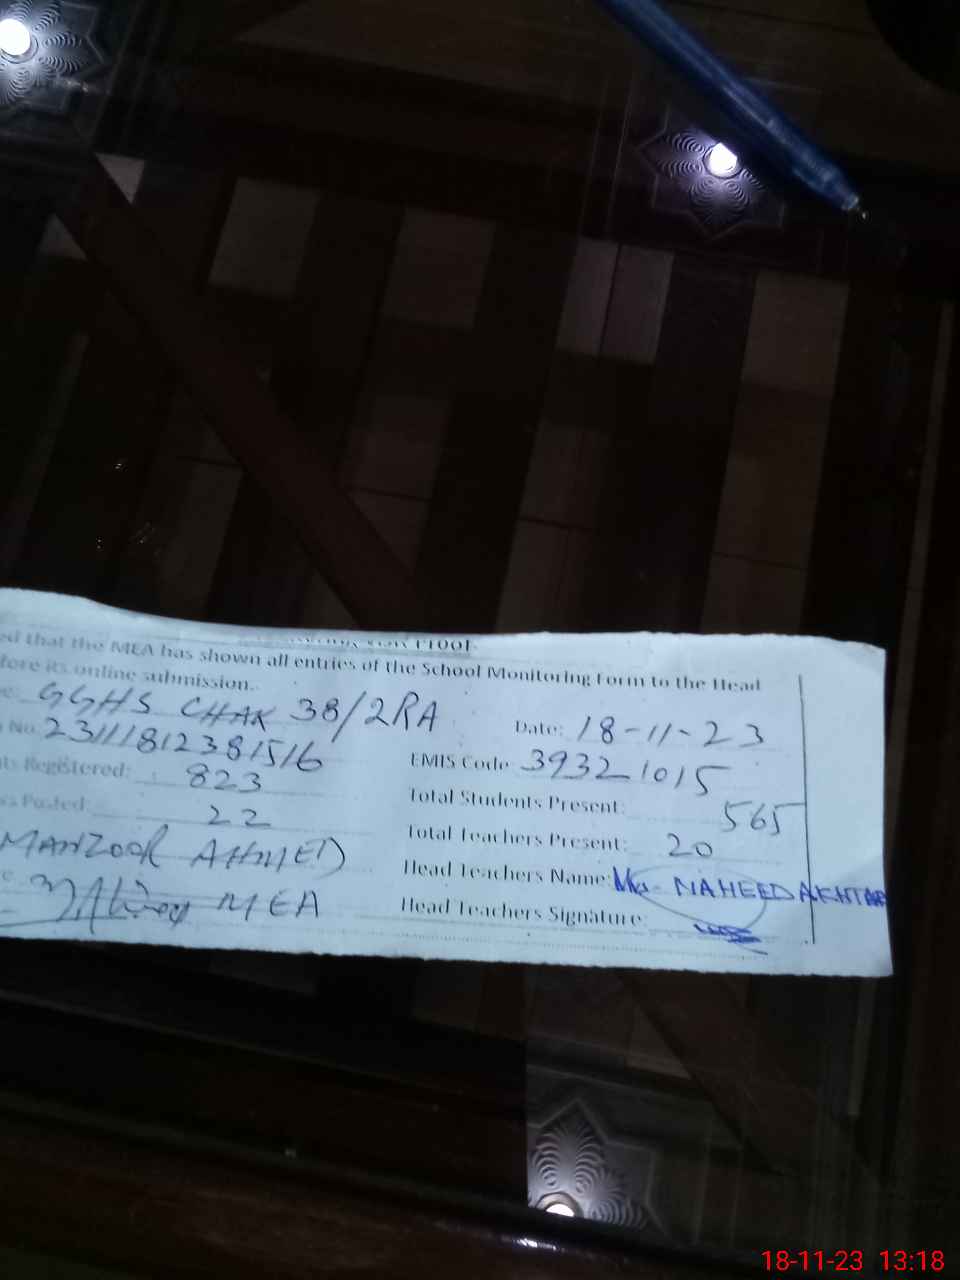 Proof
ed that the MEA has shown all entries of the School Monitoring Form to the Head
fore its online submission.
e: GGHS CHAK 38/2RA Date: 18-11-23
No. 23111812381516 EMIS Code 39321015
ts Registered: 823 Total Students Present: 565
rs Posted: 22 Total Teachers Present: 20
MANZOOR AHMED Head Teachers Name: Ms. NAHEED AKHTAR
e. MEA Head Teachers Signature:
18-11-23 13:18